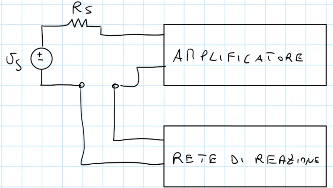 Rs
AMPLIFICATORE
υs
RETE DI REAZIONE